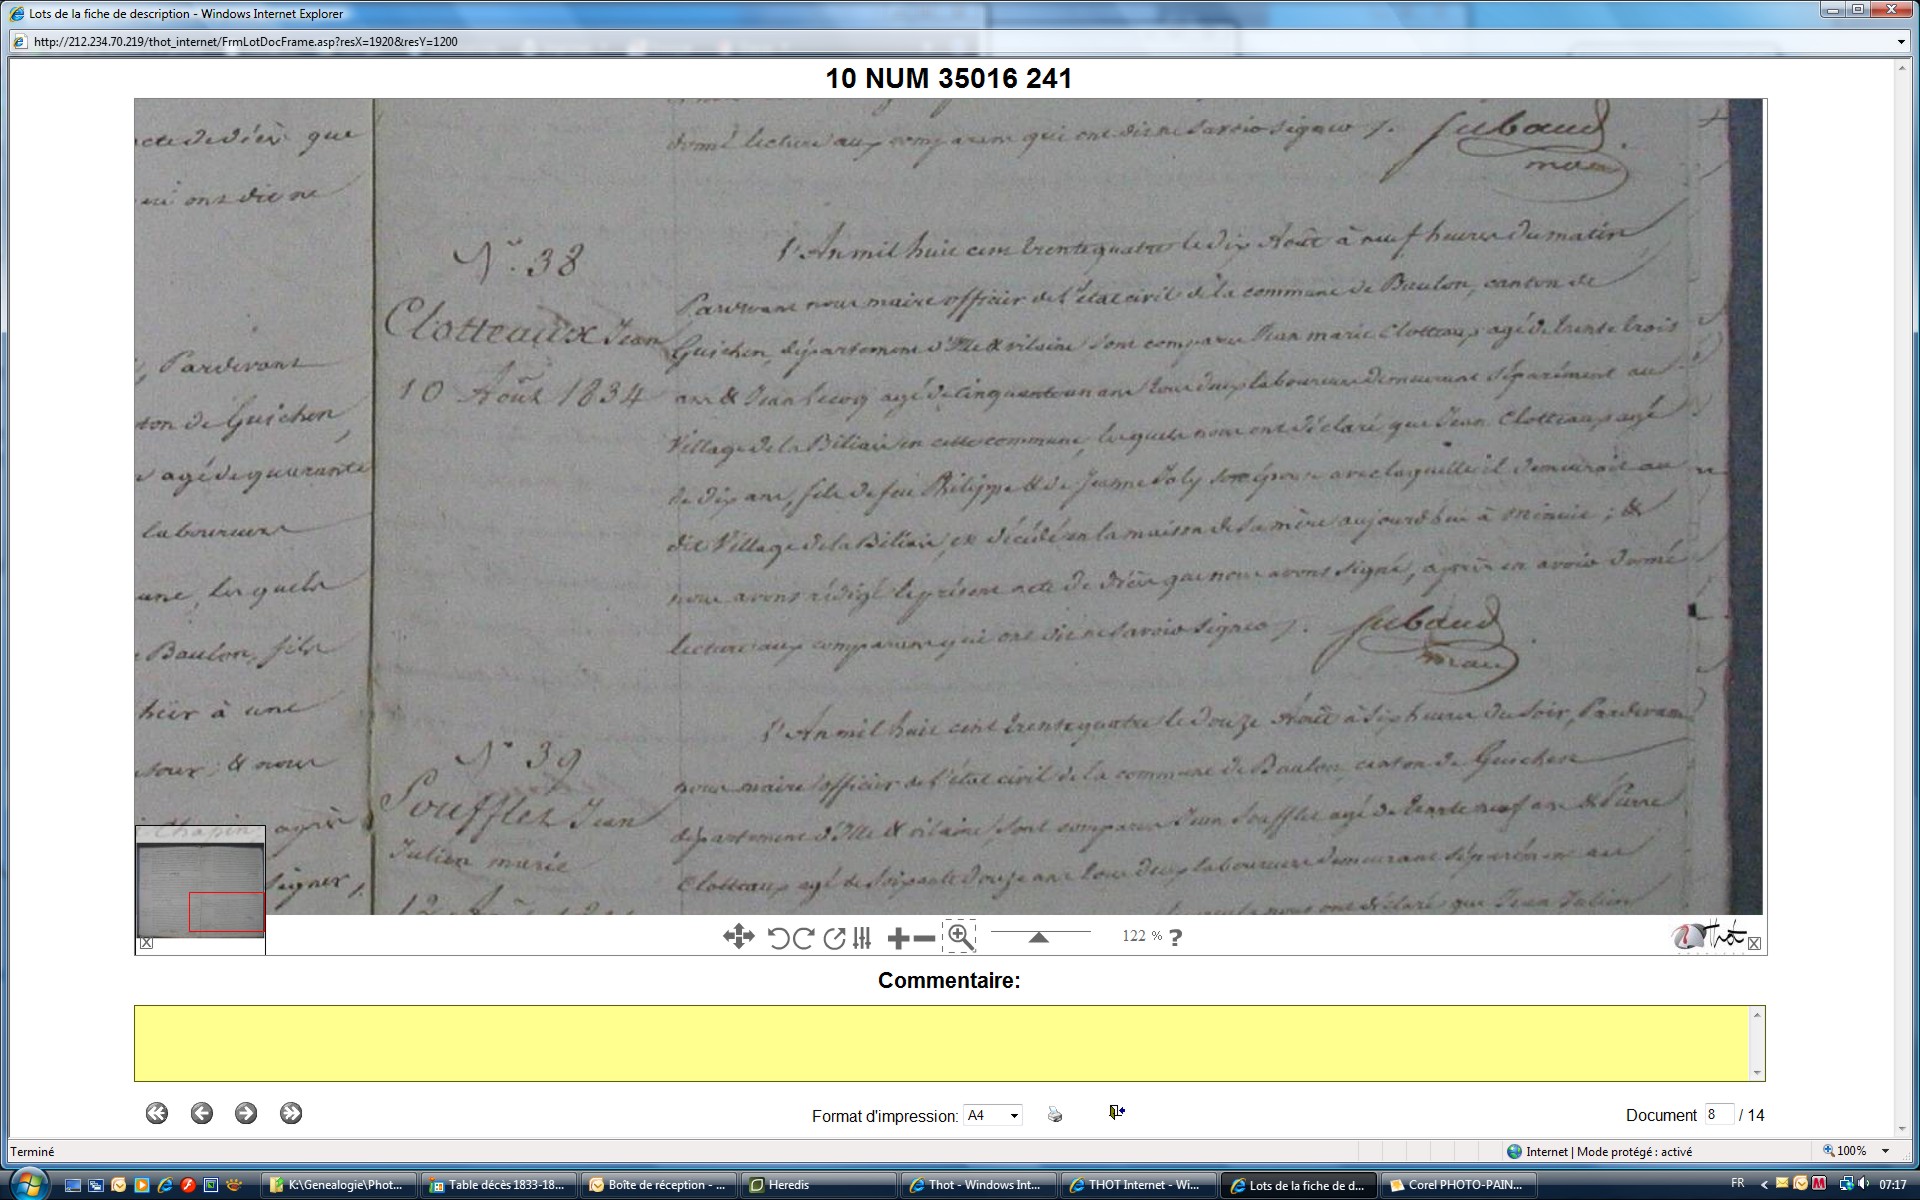 Lots de la fiche de description - Windows Internet Explorer
http://212.234.70.219/thot_internet/FrmLotDocFrame.asp?resX=1920&resY=1200
10 NUM 35016 241
donné lecture aux comparans qui ont dit ne savoir signer /.
Jubaud
maire
acte de décès que
qui ont dit ne
, Pardevant
ton de Guichen,
agé de quarante
laboureurs
une, lesquels
Baulon, fils
hier à une
jour ; & nous
Chapin après
signer /.
N.° 38
Clotteaux Jean
10 Août 1834
l'An mil huit cent trente quatre le dix Août à neuf heures du matin
Pardevant nous maire officier de l'état civil de la commune de Baulon, canton de
Guichen, département d'Ille & vilaine sont comparus Jean marie Clotteaux agé de trente trois
ans & Jean Lecoq agé de cinquante un ans tous deux laboureurs demeurant séparément au
Village de la Biliais en cette commune, lesquels nous ont déclaré que Jean Clotteaux agé
de dix ans, fils de feu Philippe & de Jeanne Joly son épouse avec laquelle il demeurait au
dit Village de la Biliais, est décédé en la maison de sa mère aujourd'hui à minuit ; &
nous avons rédigé le présent acte de décès que nous avons signé, après en avoir donné
lecture aux comparans qui ont dit ne savoir signer /.
Jubaud
maire
N.° 39
Soufflet Jean
Julien marie
12 Août
l'An mil huit cent trente quatre le douze Août à six heures du soir, Pardevant
nous maire officier de l'état civil de la commune de Baulon, canton de Guichen
département d'Ille & vilaine, sont comparus Jean Soufflet agé de trente neuf ans & Pierre
Clotteaux agé de soixante douze ans tous deux laboureurs demeurant séparément au
lesquels nous ont déclaré que Jean Julien
122 % ?
Thot
Commentaire:
Format d'impression: A4
Document 8 / 14
Terminé
Internet | Mode protégé : activé
100%
K:\Genealogie\Phot...
Table décès 1833-18...
Boîte de réception - ...
Heredis
Thot - Windows Int...
THOT Internet - Wi...
Lots de la fiche de d...
Corel PHOTO-PAIN...
FR
07:17